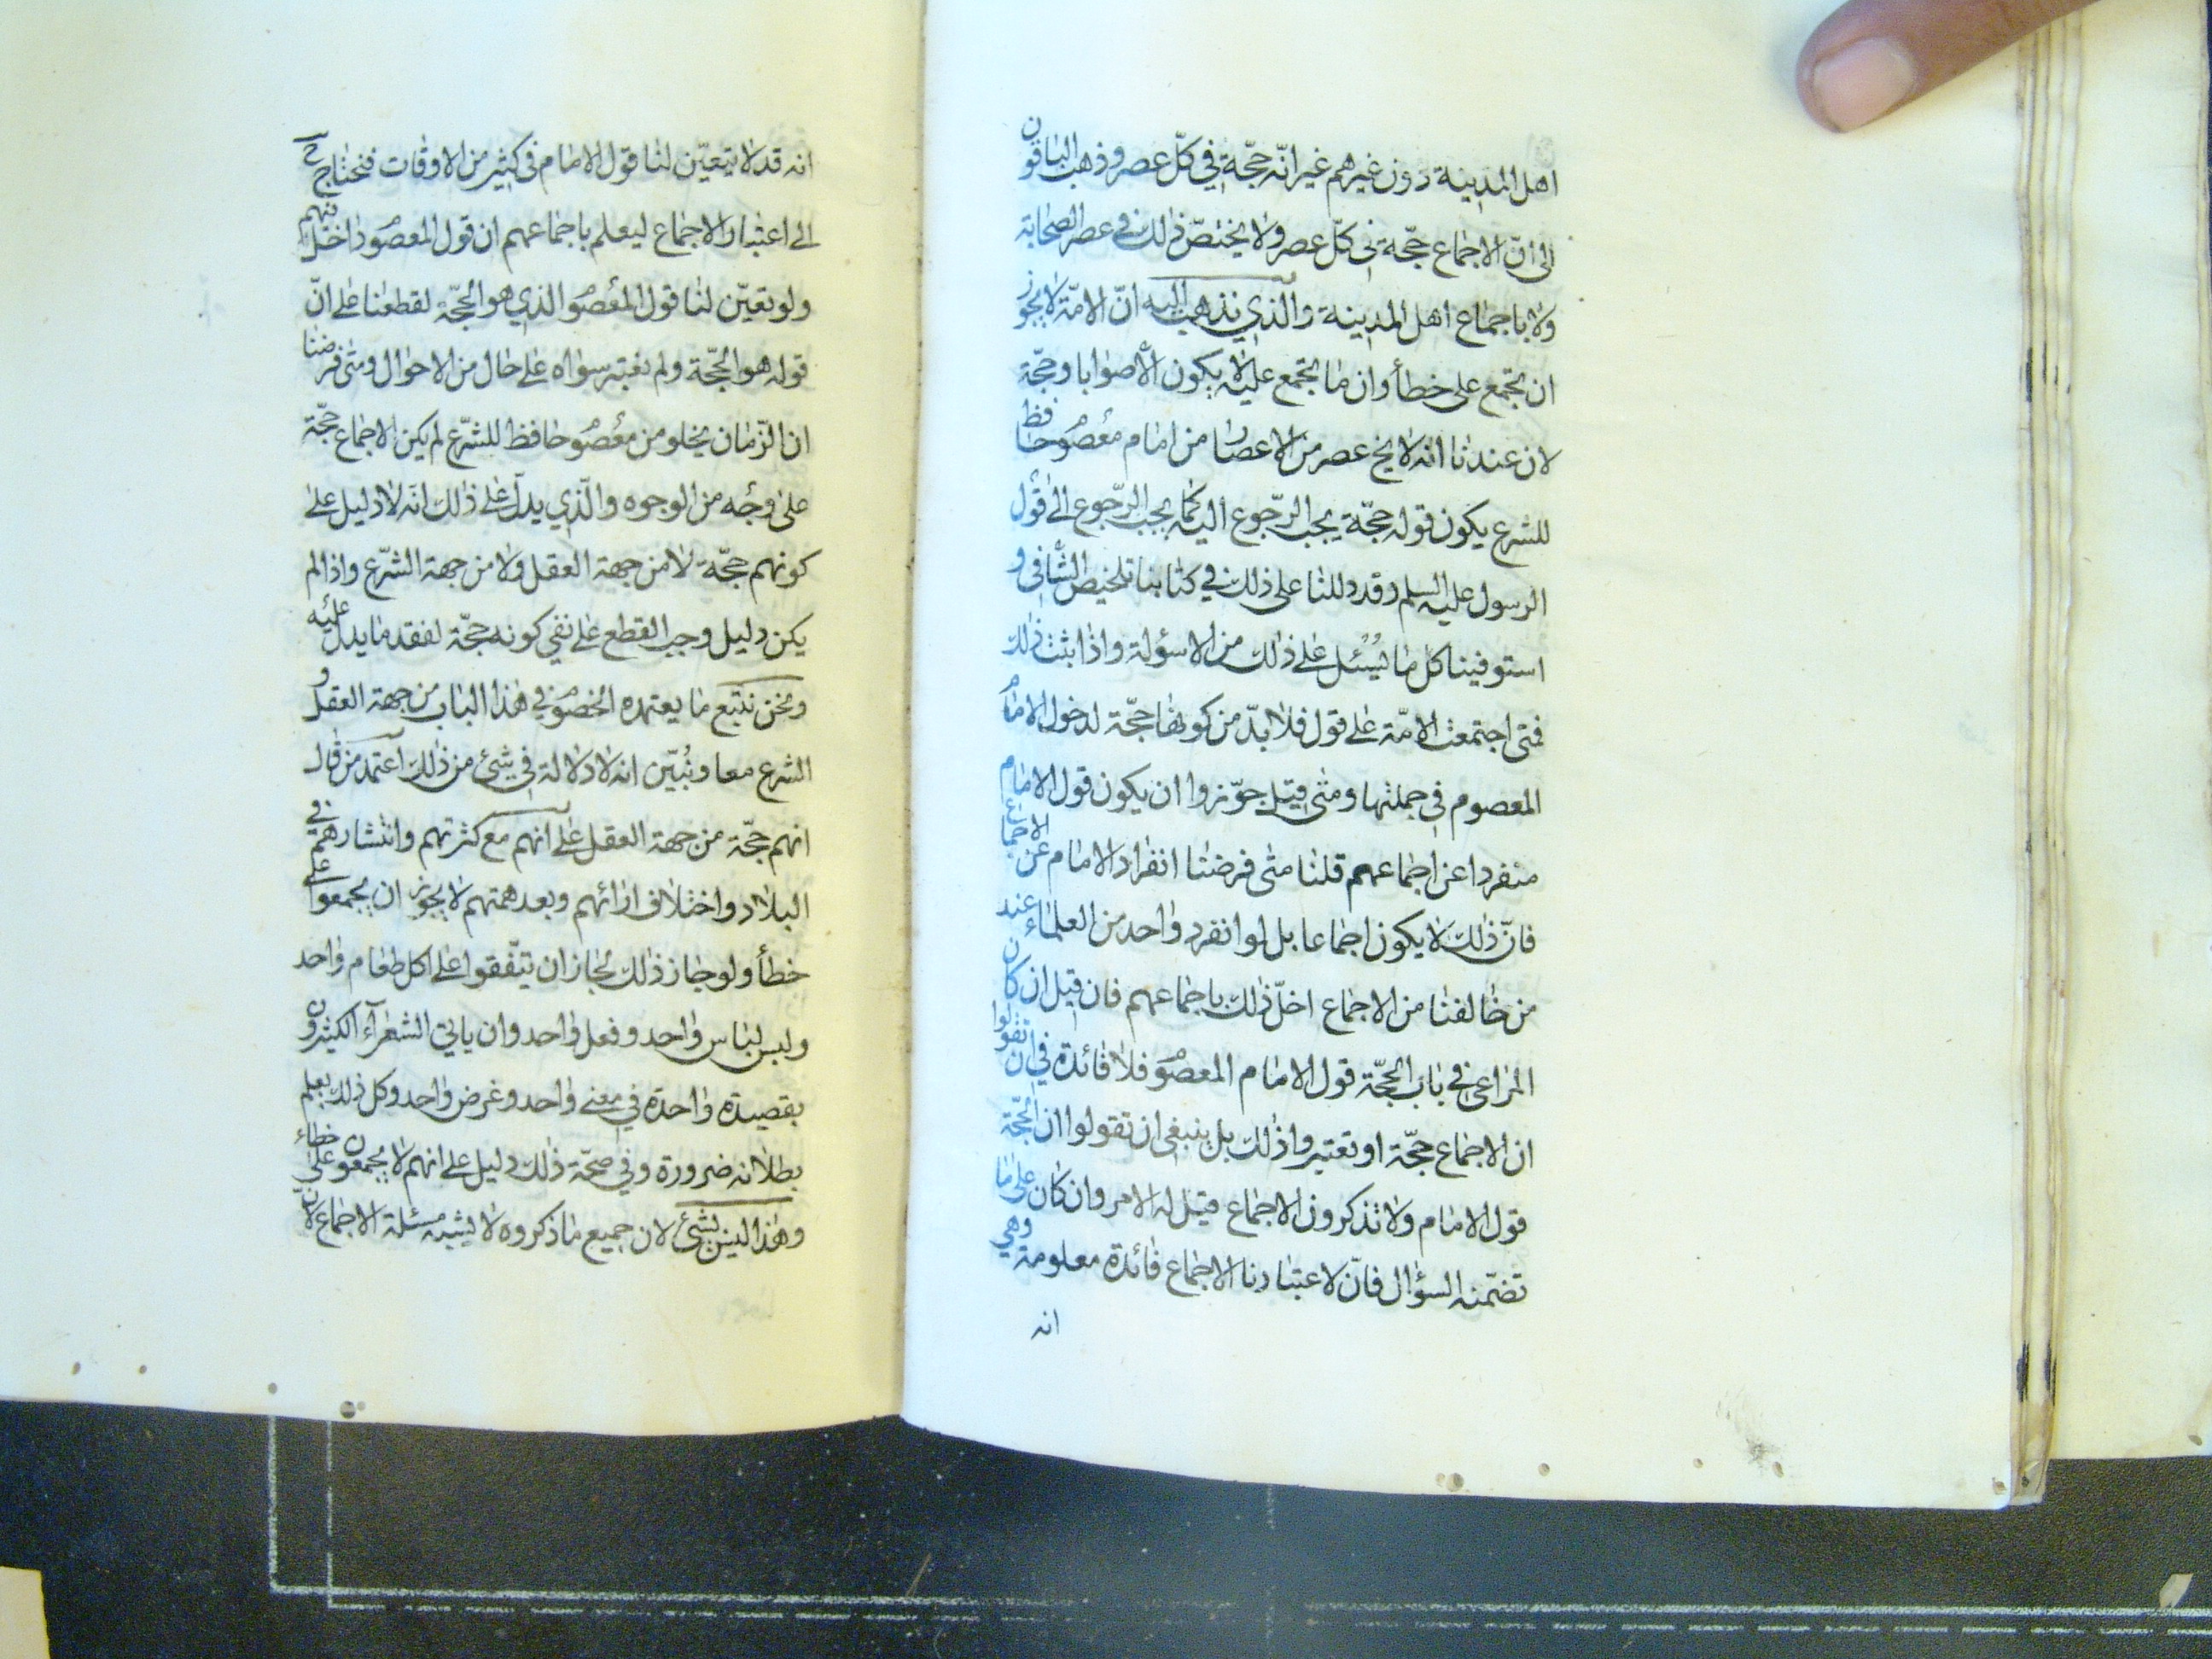 اهل المدينة دون غيرهم غير انّه حجّة في كلّ عصر وذهب الباقون
الى انّ الاجماع حجّة في كلّ عصر ولا يختصّ ذلك في عصر الصحابة
ولا باجماع اهل المدينة والّذي نذهب اليه انّ الامّة لا يجوز
ان تجتمع على خطأ وان ما تجتمع عليه لا يكون الّا صوابا وحجّة
لان عندنا انه لا يخ عصر من الاعصار من امام معصوم حافظ
للشرع يكون قوله حجّة يجب الرّجوع اليه كما يجب الرّجوع الى قول
الرسول عليه السلم وقد دللنا على ذلك في كتابنا تلخيص الشّافى و
استوفينا كل ما يُسئل على ذلك من الاسؤلة واذا ثبت ذلك
فمتى اجتمعت الامّة على قول فلا بدّ من كونها حجّة لدخول الامام
المعصوم في جملتها ومتى قيل جوّزوا ان يكون قول الامام
منفردا عن اجماعهم قلنا متى فرضنا انفراد الامام عن الاجماع
فانّ ذلك لا يكون اجماعا بل لو انفرد واحد من العلماء عند
من خالفنا من الاجماع اخلّ ذلك باجماعهم فان قيل ان كان
المراعى في باب الحجّة قول الامام المعصوم فلا فائدة في ان تقولوا
ان الاجماع حجّة او تعتبروا ذلك بل ينبغى ان تقولوا ان الحجّة
قول الامام ولا تذكرون الاجماع قيل له الامر وان كان على ما
تضمّنه السؤال فانّ لاعتبارنا الاجماع فائدة معلومة وهي
انه
انه قد لا يتعيّن لنا قول الامام فى كثير من الاوقات فنحتاج ح
الى اعتبار الاجماع ليعلم باجماعهم ان قول المعصوم داخل فيهم
ولو تعيّن لنا قول المعصوم الذي هو الحجّة لقطعنا على انّ
قوله هو الحجّة ولم نعتبر سواه على حال من الاحوال ومتى فرضنا
ان الزّمان يخلو من معصوم حافظ للشّرع لم يكن الاجماع حجّة
على وجه من الوجوه والّذي يدلّ على ذلك انّه لا دليل على
كونهم حجّة لا من جهة العقل ولا من جهة الشّرع واذا لم
يكن دليل وجب القطع على نفي كونه حجّة لفقد ما يدل عليه
ونحن نتتبع ما يعتمده الخصوم في هذا الباب من جهة العقل و
الشرع معا ونُبيّن انه لا دلالة في شئ من ذلك اعتمد من قال
انهم حجّة من جهة العقل على انهم مع كثرتهم وانتشارهم في
البلاد واختلاف ارائهم وبعد همتهم لا يجوز ان يجمعوا على
خطأ ولو جاز ذلك لجاز ان يتّفقوا على اكل طعام واحد
ولبس لباس واحد وفعل واحد وان ياتى الشعرآء الكثيرون
بقصيدة واحدة في معنى واحد وغرض واحد وكل ذلك يعلم
بطلانه ضرورة وفي صحّة ذلك دليل على انهم لا يجمعون على خطاء
وهذا ليس بشئ لان جميع ما ذكروه لا يشبه مسئلة الاجماع لانّ